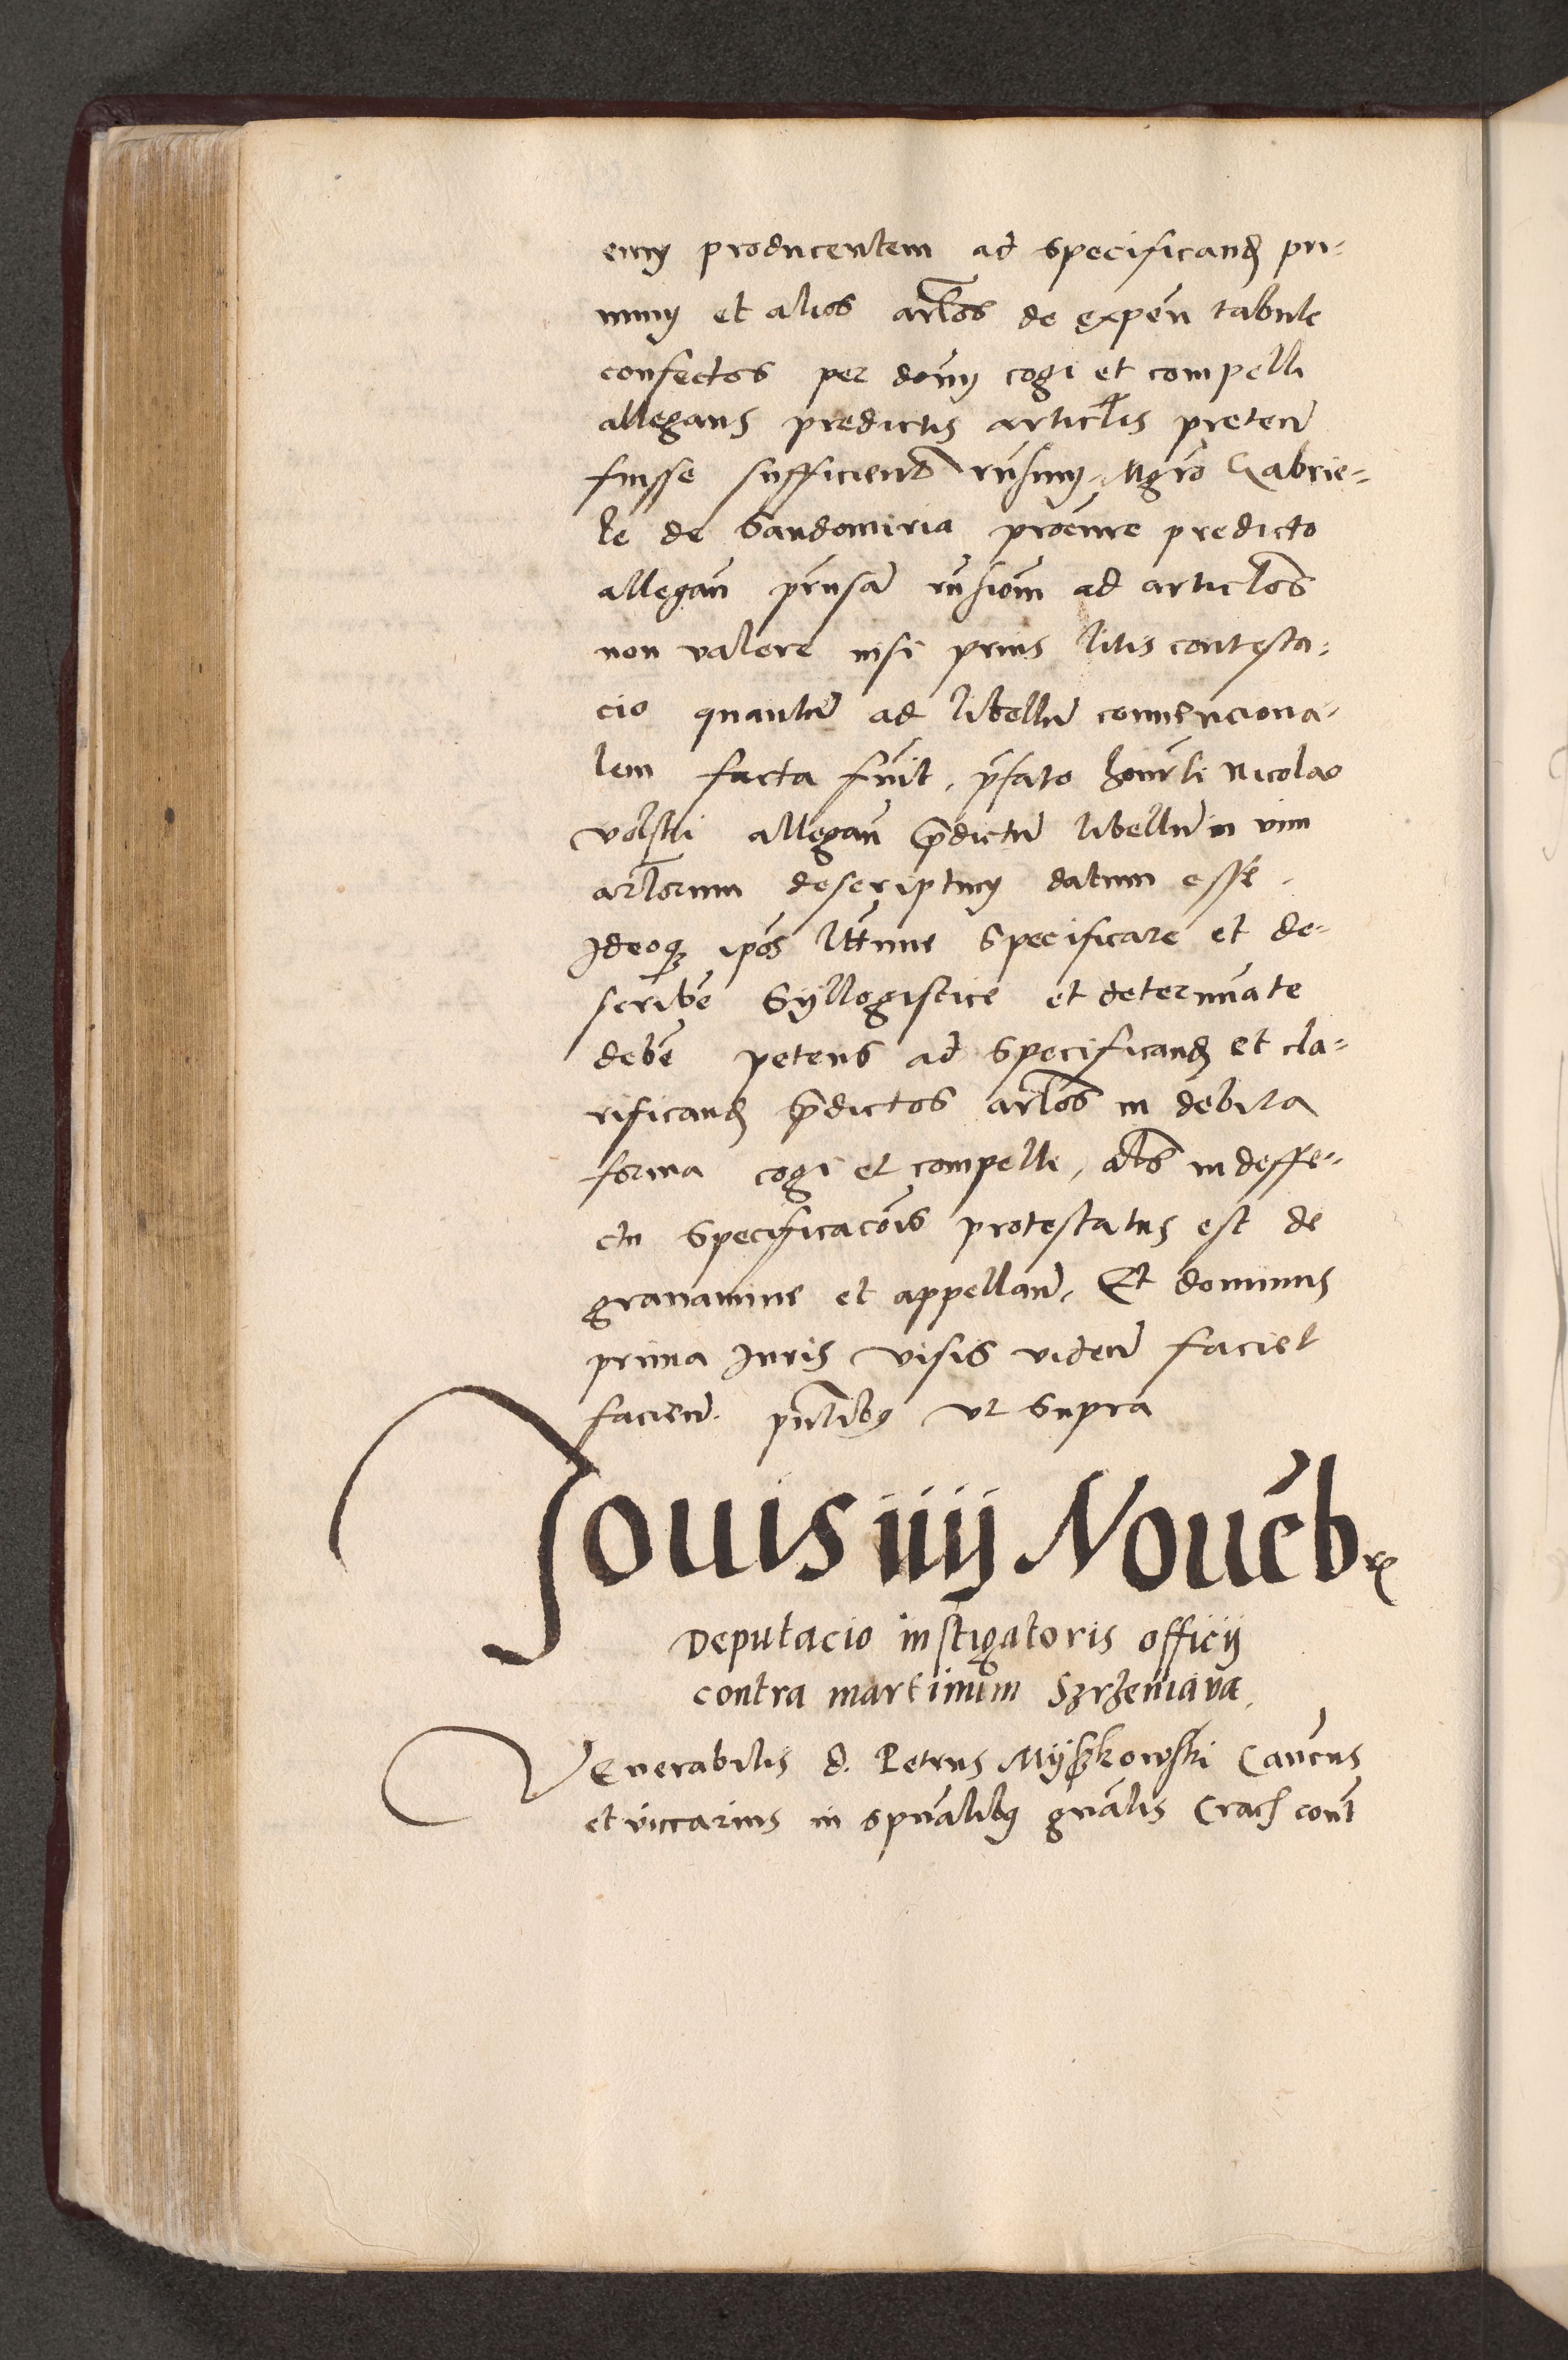 eum producentem ad specificand pri-
mum et alios arlos de expen tabule
confectos per dnum cogi et compelli
allegans predictis articlis preten
fuisse sufficient rnsum, Mgro Gabrie-
le de Sandomiria procure predicto
allegan prensam rnsionem ad articlos
non valere nisi prius litis contesta-
cio quantum ad libellum convenciona-
lem facta fuit, pfato honrli Nicolao
Volski allegan pdictum libellum in vim
arlorum descriptum datum esse.
Ideoq ipos lttime specificare et de-
scribe syllogistice et determinate
debe petens ad specificand et cla-
rificand pdictos arlos in debita
forma cogi et compelli, als in deffe-
ctu specificacois protestatus est de
gravamine et appellan. Et dominus
prima Juris visis viden faciet
facien. pntibus ut supra
Jouis iiij Nouebr
Deputacio instigatoris officij
contra martinum Szrzeniava
Venerabilis d. Petrus Myszkowski Cancus
et viccarius in spualibus gnalis Crac